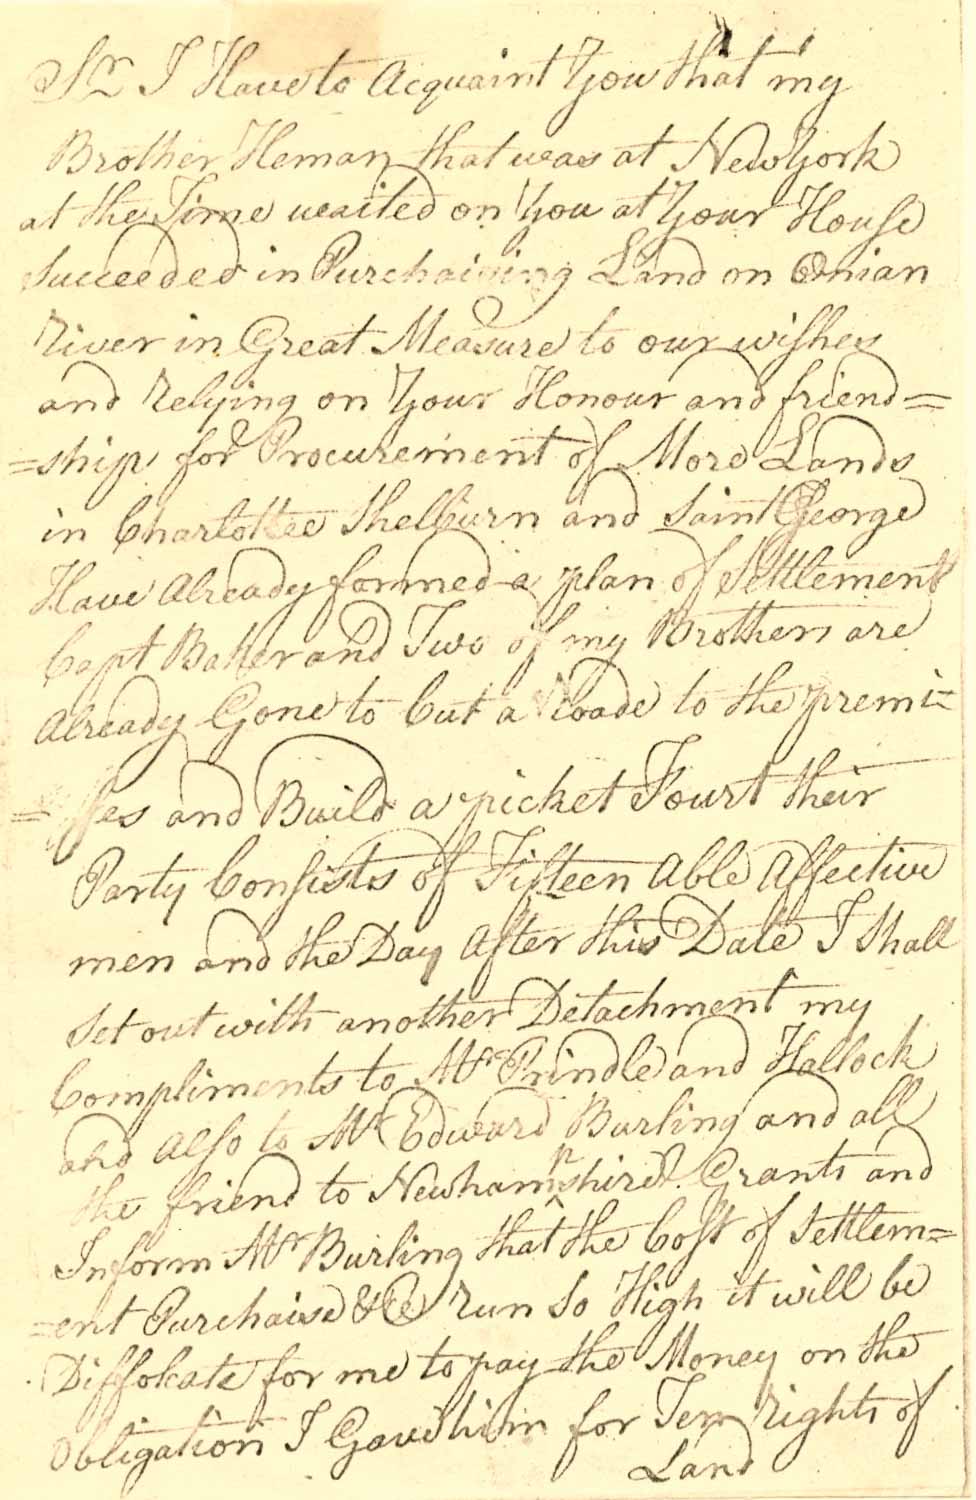 Sr I Have to Acquaint You that my
Brother Heman that was at NewYork
at the Time waited on You at Your House
Succeeded in Purchaising Land on Onian
River in Great Measure to our wishes
and Relying on Your Honour and friend=
=ship for Procurement of More Lands
in Charlottee Shelburn and Saint George
Have Already formed a plan of Settlement
Capt Baker and Two of my Brothers are
Already Gone to Cut a Roade to the premi=
=sses and Build a picket Fourt their
Party Consists of Fifteen Able Affective
men and the Day After this Date I Shall
Set out with another Detachment my
Compliments to Mrs Prindle and Hallock
and Also to Mr Edward Burling and all
the friend to Newhampshire Grants and
Inform Mr Burling that the Cost of Settlem=
=ent Purchaise &Ce run So High it will be
Diffokate for me to pay the Money on the
Obligation I Gave him for Ten rights of
Land